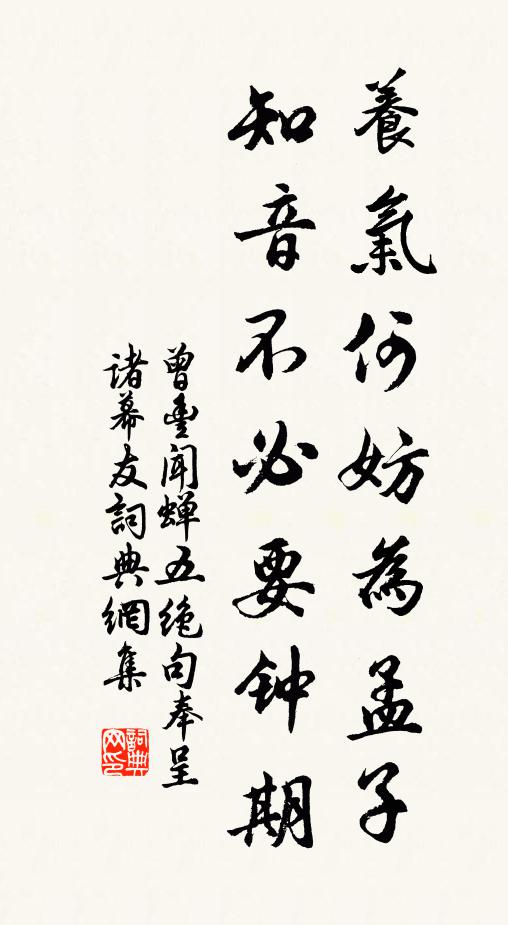 養氣何妨為孟子
知音不必要钟期
曾豐聞蝉五绝句奉呈
诸幕友詞典網集
詞典网印